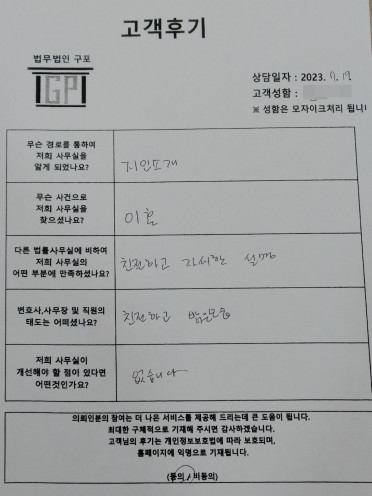 고객후기
법무법인 구포
GP
상담일자 : 2023. 7. 19
고객성함 :
※ 성함은 모자이크처리 됩니
무슨 경로를 통하여
저희 사무실을
알게 되었나요?
지인소개
무슨 사건으로
저희 사무실을
찾으셨나요?
이혼
다른 법률사무실에 비하여
저희 사무실의
어떤 부분에 만족하셨나요?
친절하고 자세한 설명
변호사,사무장 및 직원의
태도는 어떠셨나요?
친절하고 밝은모습
저희 사무실이
개선해야 할 점이 있다면
어떤것인가요?
없습니다
의뢰인분의 참여는 더 나은 서비스를 제공해 드리는데 큰 도움이 됩니다.
최대한 구체적으로 기재해 주시면 감사하겠습니다.
고객님의 후기는 개인정보보호법에 따라 보호되며,
홈페이지에 익명으로 기재됩니다.
(동의 / 비동의)